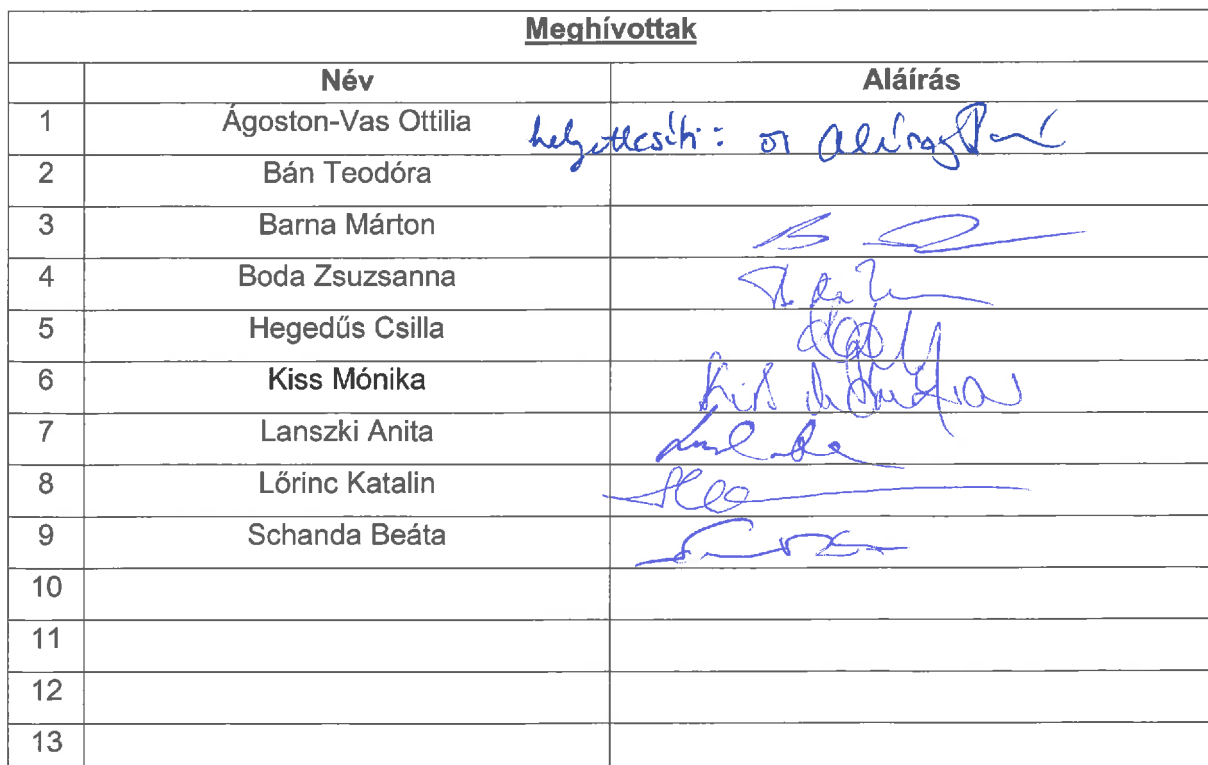 Meghívottak
Név Aláírás
1 Ágoston-Vas Ottilia helyettesíti:
2 Bán Teodóra
3 Barna Márton
4 Boda Zsuzsanna
5 Hegedűs Csilla
6 Kiss Mónika Kiss Mónika
7 Lanszki Anita
8 Lőrinc Katalin
9 Schanda Beáta
10
11
12
13